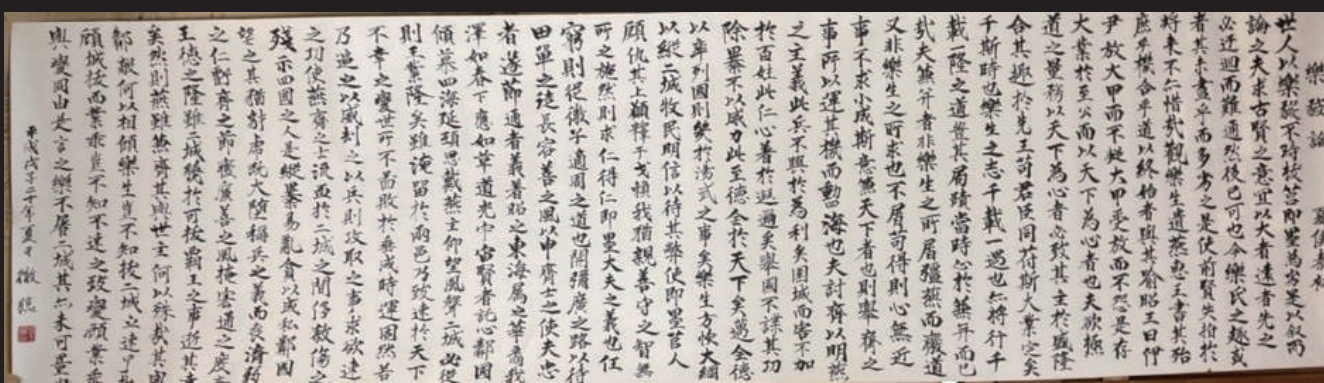 樂毅論 夏侯泰初
世人以樂毅不時拔莒即墨為劣是以叙而
論之夫求古賢之意宜以大者遠者先之
必迂迴而難通然後已可也今樂氏之趣或
者其未盡乎而多劣之是使前賢失指於
將來不亦惜哉觀樂生遺燕惠王書其殆
庶乎機合乎道以終始者與其喻昭王曰伊
尹放大甲而不疑大甲受放而不怨是存
大業於至公而以天下為心者也夫欲極
道之量務以天下為心者必致其主於盛隆
合其趣於先王苟君臣同符斯大業定矣
于斯時也樂生之志千載一遇也亦將行千
載一隆之道豈其局蹟當時心於兼并而已
哉夫兼并者非樂生之所屑彊燕而廢道
又非樂生之所求也不屑苟得則心無近
事不求小成斯意兼天下者也則舉齊之
事所以運其機而動四海也夫討齊以明燕
之主義此兵不興於為利矣圍城而害不加
於百姓此仁心著於遐邇矣舉國不謀其功
除暴不以威力此至德全於天下矣邁全德
以率列國則幾於湯武之事矣樂生方恢大綱
以縱二城牧民明信以待其弊使即墨莒人
顧仇其上願釋干戈賴我猶親善守之智無
所之施然則求仁得仁即墨大夫之義也任
窮則從微子適周之道也開彌廣之路以待
田單之徒長容善之風以申齊士之使夫忠
者遂節通者義著昭之東海屬之華裔我
澤如春下應如草道光宇宙賢者託心鄰國
傾慕四海延頸思戴燕主仰望風聲二城必從
則王業隆矣雖淹留於兩邑乃致速於天下
不幸之變世所不圖敗於垂成時運固然若
乃逼之以威劫之以兵則攻取之事求欲速
之功使燕齊之士流血於二城之間侈殺傷之
殘示四國之人是縱暴易亂貪以成私鄰國
望之其猶豺虎既大墮稱兵之義而喪濟弱
之仁虧齊之節廢廉善之風掩宏通之度弃
王德之隆雖二城幾於可拔霸王之事逝其遠
矣然則燕雖兼齊其與世主何以殊哉其與
鄰敵何以相傾樂生豈不知拔二城立速了哉
顧城拔而業乖豈不知不速之致變顧業乖
與變同由是言之樂不屠二城其亦未可量也
平成戊子二十年夏日 徹